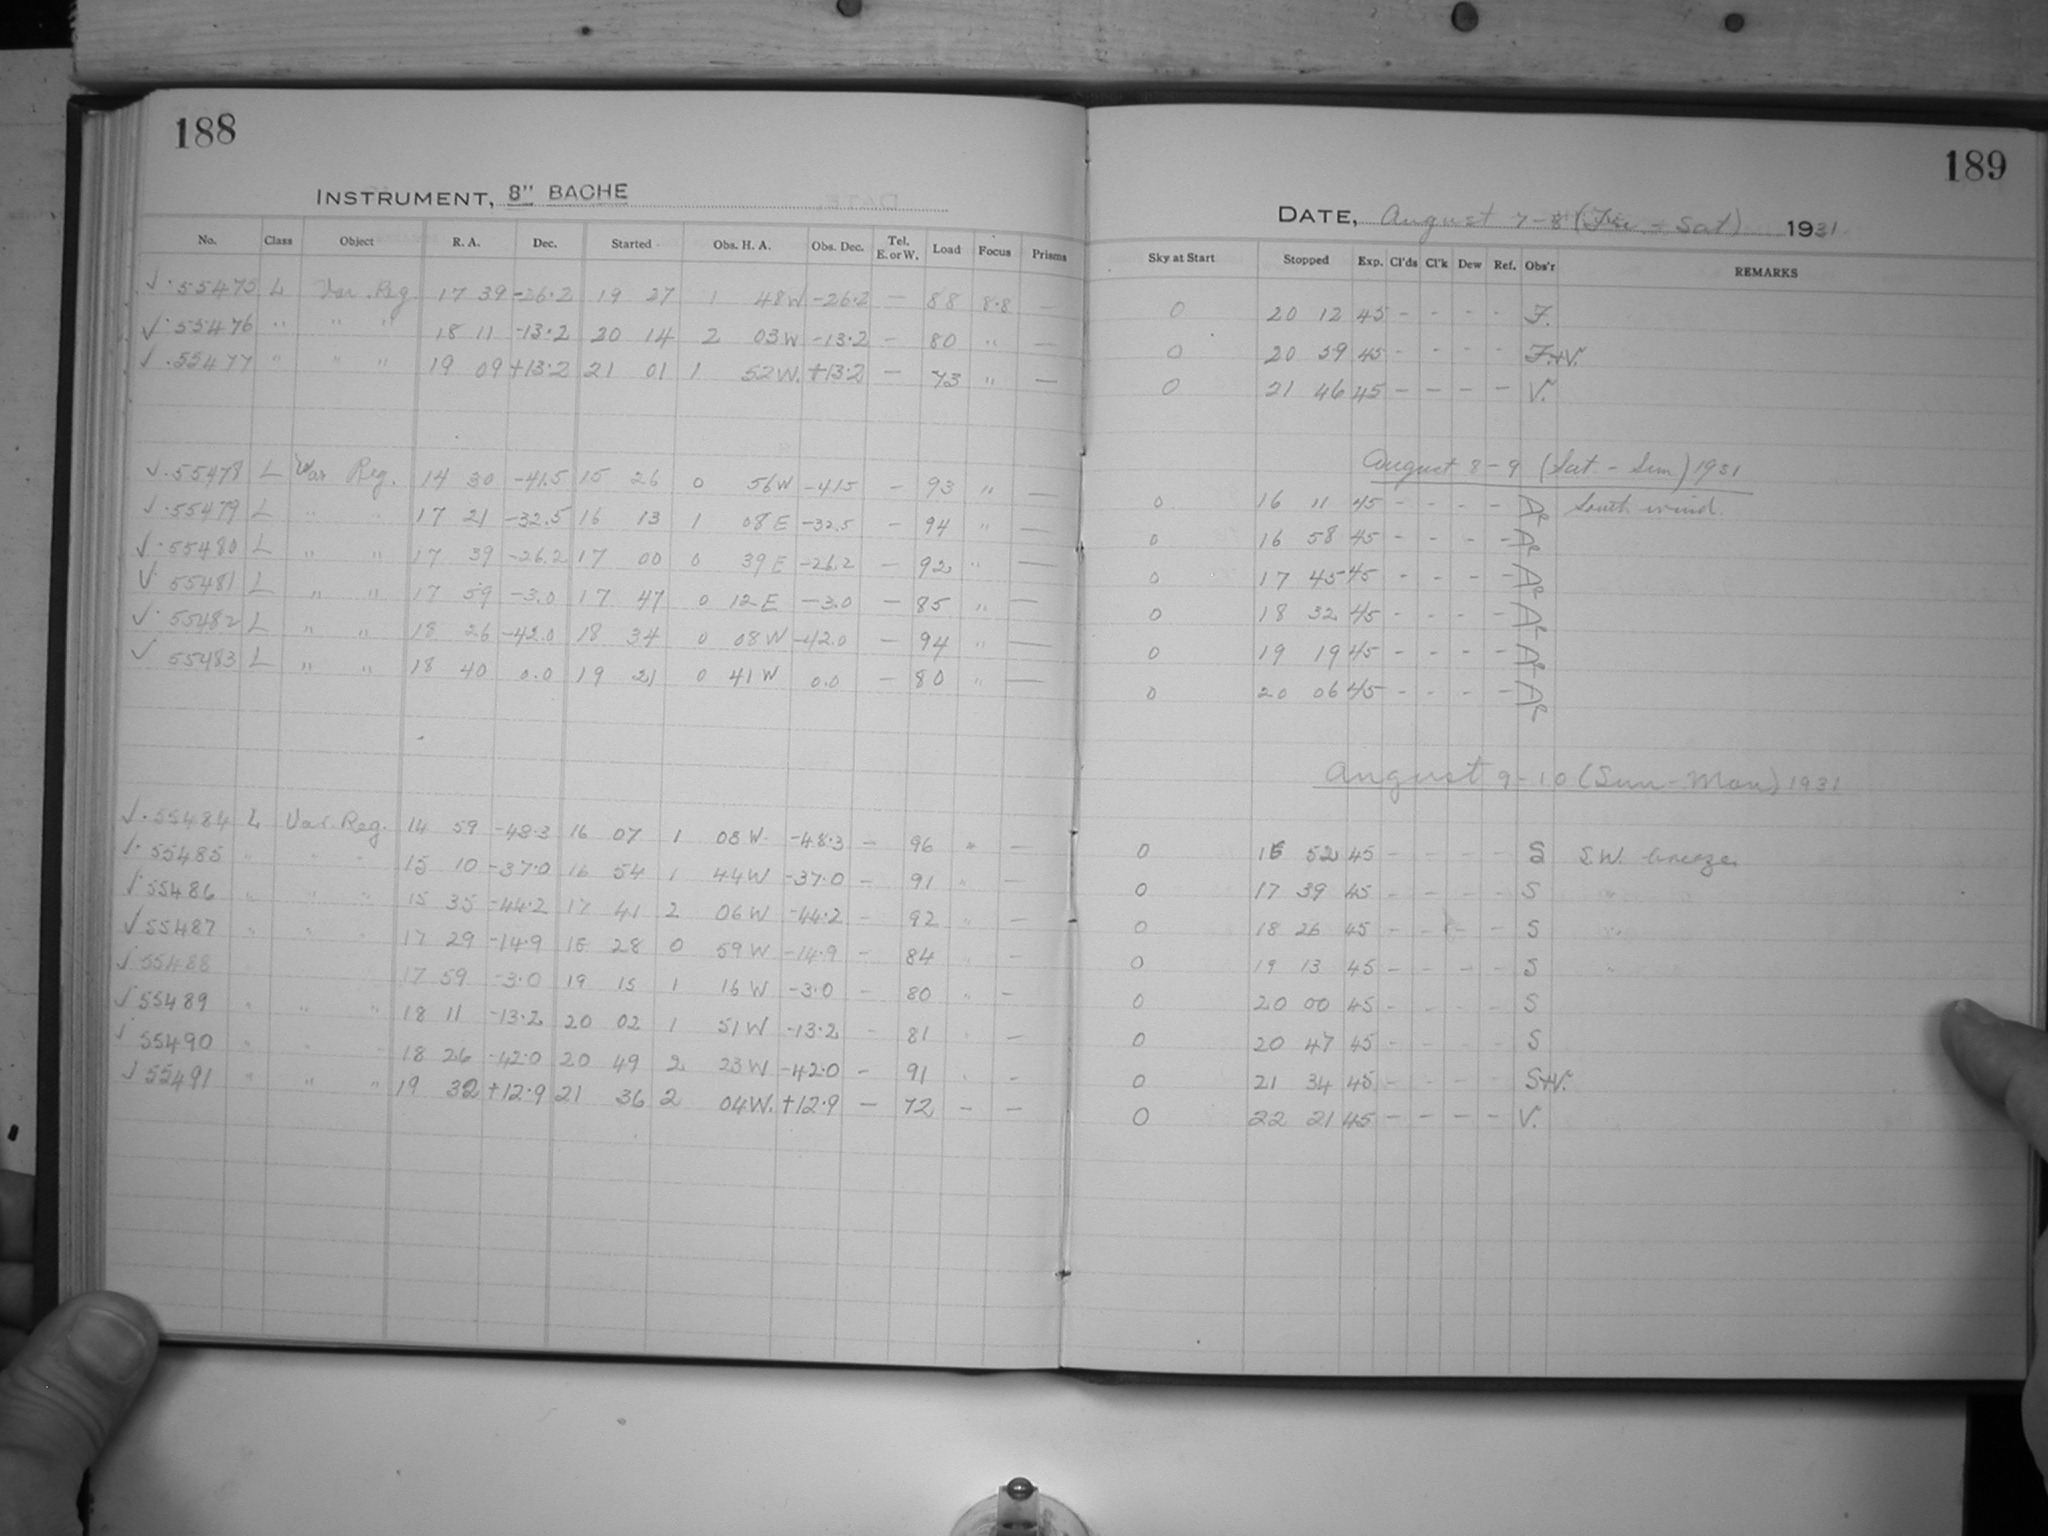 188
INSTRUMENT, 8" BACHE
No. Class Object R. A. Dec. Started Obs. H. A. Obs. Dec. Tel. E. or W. Load Focus Prisms
✓ · 55475 L Var. Reg. 17 39 -26.2 19 27 1 48 W -26.2 — 88 8.8 —
✓ · 55476 " " " 18 11 -13.2 20 14 2 03 W -13.2 — 80 " —
✓ · 55477 " " " 19 09 +13.2 21 01 1 52 W. +13.2 — 73 " —
✓ · 55478 L Var Reg. 14 30 -41.5 15 26 0 56 W -41.5 — 93 " —
✓ · 55479 L " " 17 21 -32.5 16 13 1 08 E -32.5 — 94 " —
✓ · 55480 L " " 17 39 -26.2 17 00 0 39 E -26.2 — 92 " —
✓ · 55481 L " " 17 59 -3.0 17 47 0 12 E -3.0 — 85 " —
✓ · 55482 L " " 18 26 -42.0 18 34 0 08 W -42.0 — 94 " —
✓ 55483 L " " 18 40 0.0 19 21 0 41 W 0.0 — 80 " —
✓ · 55484 L Var. Reg. 14 59 -48.3 16 07 1 08 W. -48.3 — 96 " —
✓ · 55485 " " " 15 10 -37.0 16 54 1 44 W -37.0 — 91 " —
✓ 55486 " " " 15 35 -44.2 17 41 2 06 W -44.2 — 92 " —
✓ 55487 " " " 17 29 -14.9 18 28 0 59 W -14.9 — 84 " —
✓ 55488 17 59 -3.0 19 15 1 16 W -3.0 — 80 " —
✓ 55489 " " " 18 11 -13.2 20 02 1 51 W -13.2 — 81 " —
✓ 55490 " " " 18 26 -42.0 20 49 2 23 W -42.0 — 91 " —
✓ 55491 " " " 19 32 +12.9 21 36 2 04 W. +12.9 — 72 — —
189
DATE, August 7-8 (Fri - Sat) 1931
Sky at Start Stopped Exp. Cl'ds Cl'k Dew Ref. Obs'r REMARKS
0 20 12 45 - - - - F.
0 20 59 45 - - - - F.+V.
0 21 46 45 - - - - V.
August 8-9 (Sat - Sun) 1931
0 16 11 45 - - - - AP South wind.
0 16 58 45 - - - - AP
0 17 45 45 - - - - AP
0 18 32 45 - - - - AP
0 19 19 45 - - - - AP
0 20 06 45 - - - - AP
August 9-10 (Sun - Mon) 1931
0 16 52 45 - - - - S S.W. breeze.
0 17 39 45 - - - - S "
0 18 26 45 - - - - S "
0 19 13 45 - - - - S "
0 20 00 45 - - - - S
0 20 47 45 - - - - S
0 21 34 45 - - - - S+V.
0 22 21 45 - - - - V.